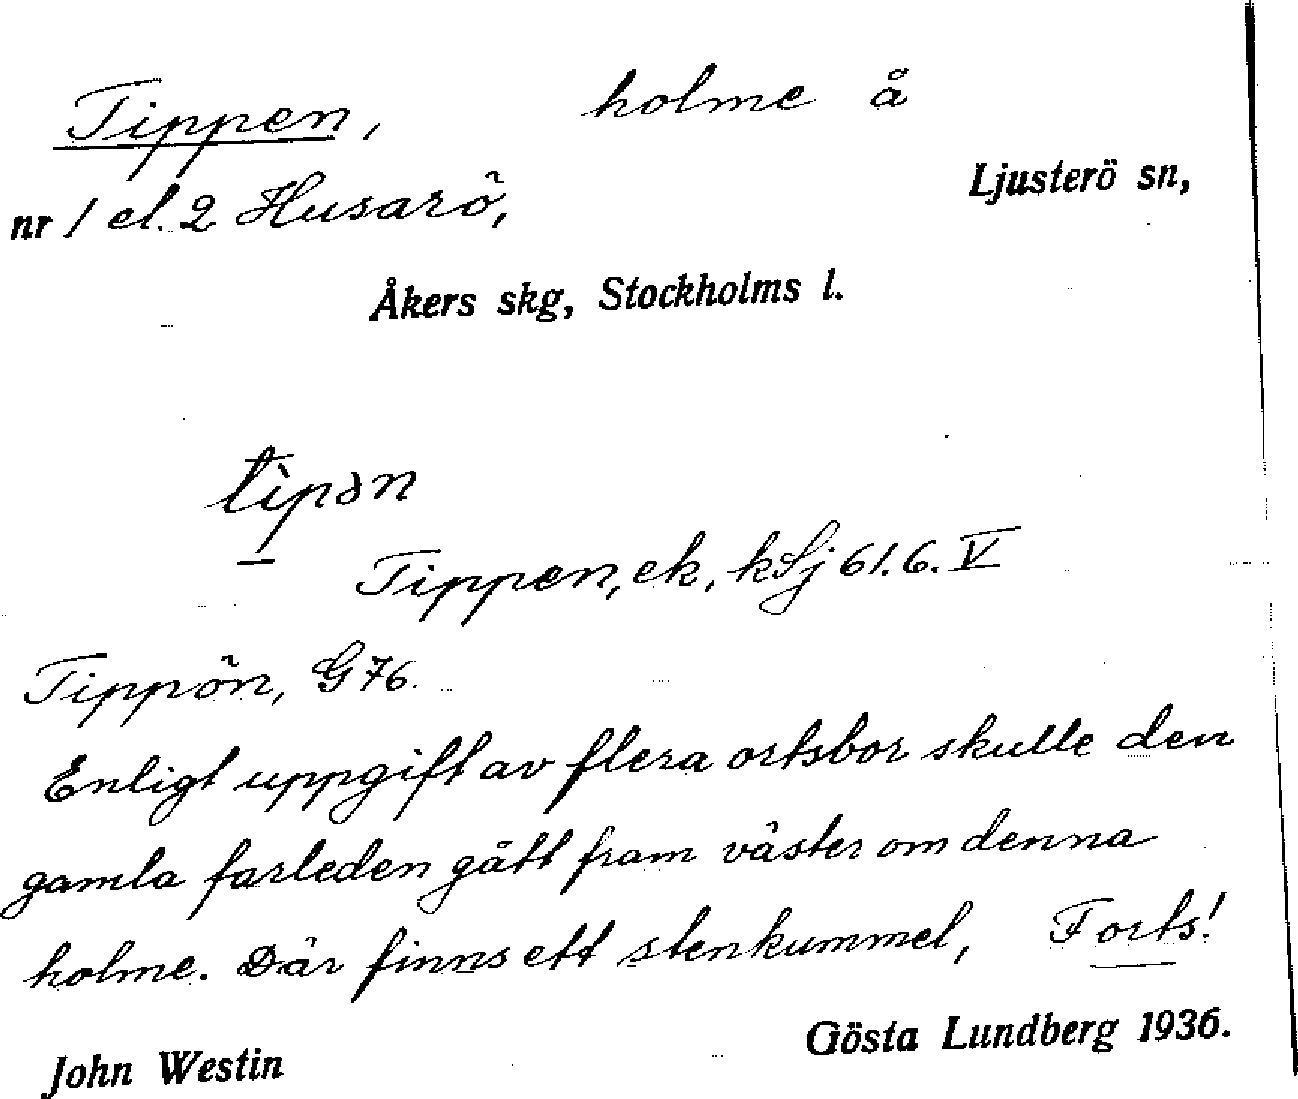 Tippen, holme å
nr 1 el. 2 Husarö, Ljusterö sn,
Åkers skg, Stockholms l.
tìpən
Tippen, ek, kLj 61.6. V
Tippön, G 76.
Enligt uppgift av flera ortsbor skulle den
gamla farleden gått fram väster om denna
holme. Där finns ett stenkummel, Forts!
Gösta Lundberg 1936.
John Westin